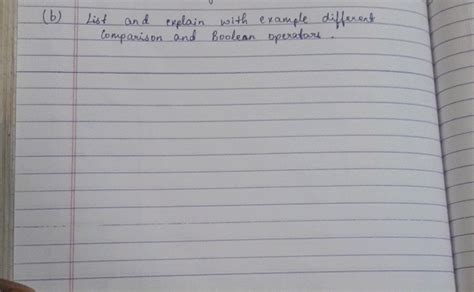 (b) List and explain with example different
Comparison and Boolean operators.